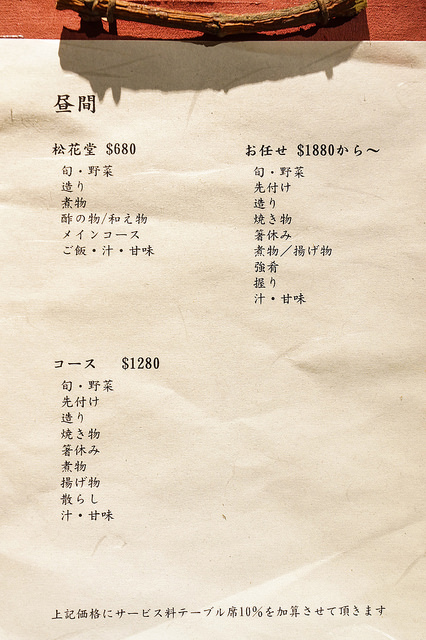 昼間
松花堂 $680
旬・野菜
造り
煮物
酢の物/和え物
メインコース
ご飯・汁・甘味
お任せ $1880から～
旬・野菜
先付け
造り
焼き物
箸休み
煮物／揚げ物
強肴
握り
汁・甘味
コース $1280
旬・野菜
先付け
造り
焼き物
箸休み
煮物
揚げ物
散らし
汁・甘味
上記価格にサービス料テーブル席10%を加算させて頂きます